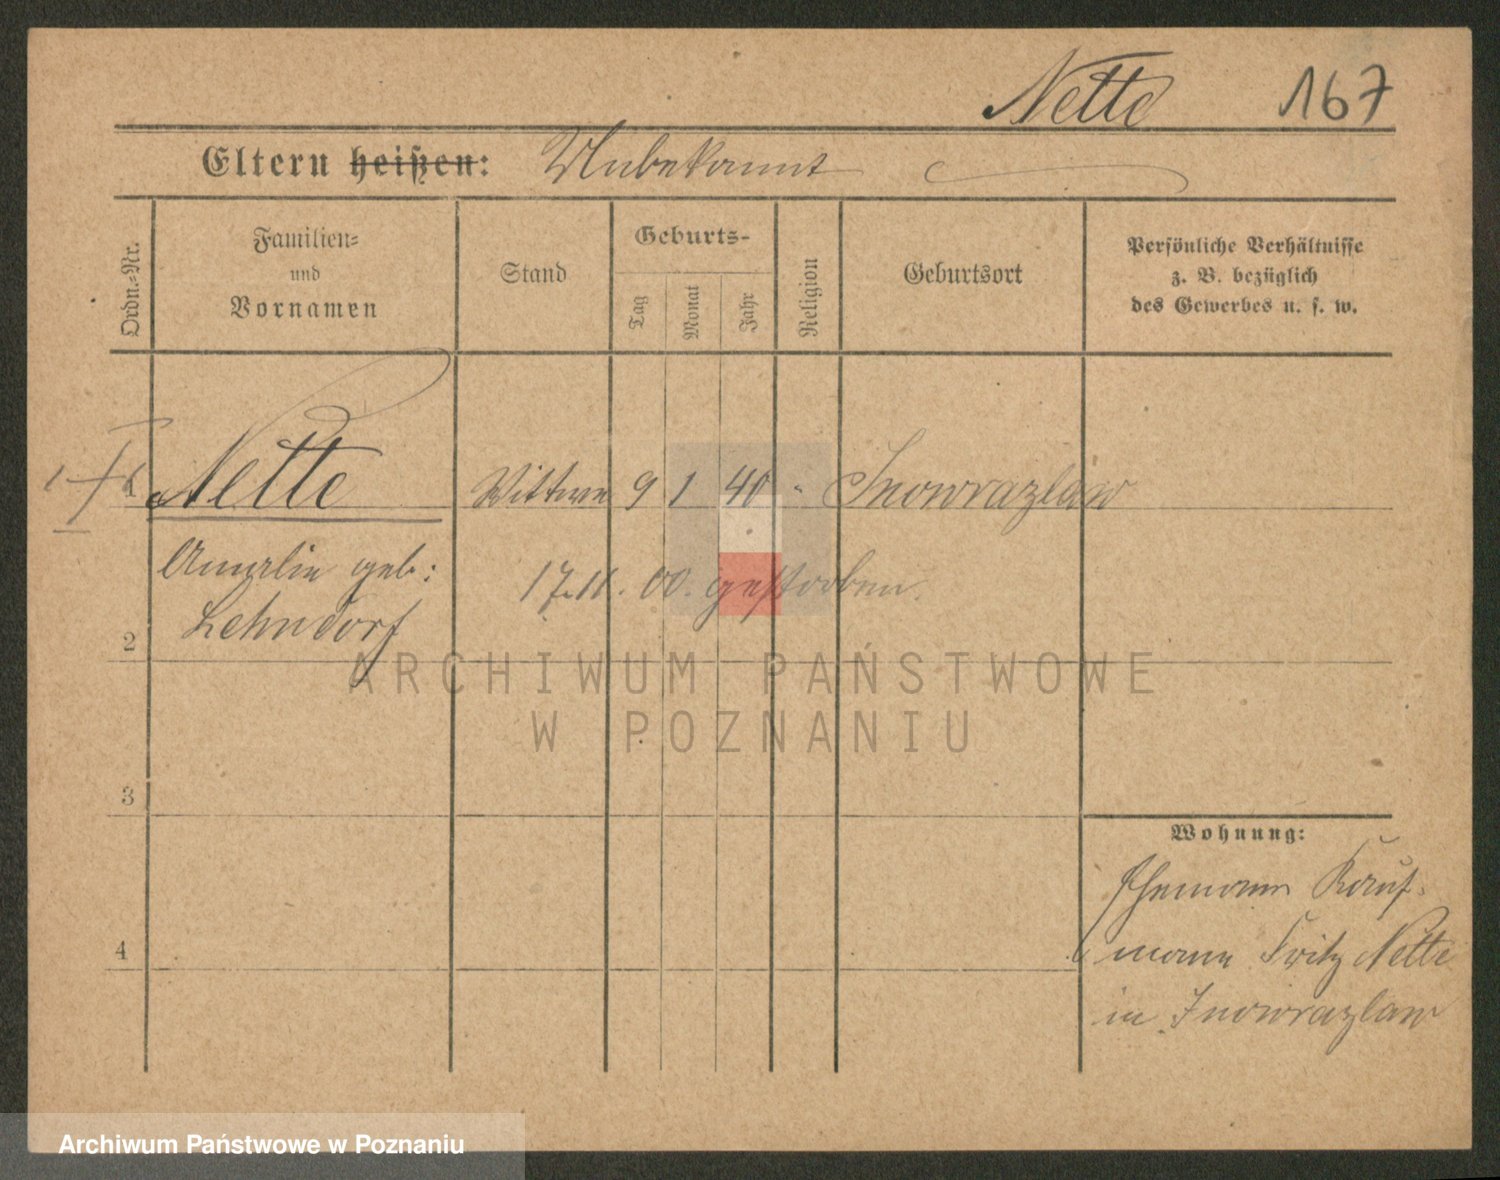 Nette 167
Eltern heißen: Unbekannt
Ordn.-Nr.
Familien-
und
Vornamen
Stand
Geburts-
Tag
Monat
Jahr
Religion
Geburtsort
Persönliche Verhältnisse
z. B. bezüglich
des Gewerbes u. s. w.
1 Nette Wittwe 9 1 40 " Inowrazlaw
Amalie geb:
Lehndorf
17.11.00. gestorben.
2
3
4
Wohnung:
Ehemann Kauf-
mann Fritz Nette
in Inowrazlaw
ARCHIWUM PAŃSTWOWE
W POZNANIU
Archiwum Państwowe w Poznaniu